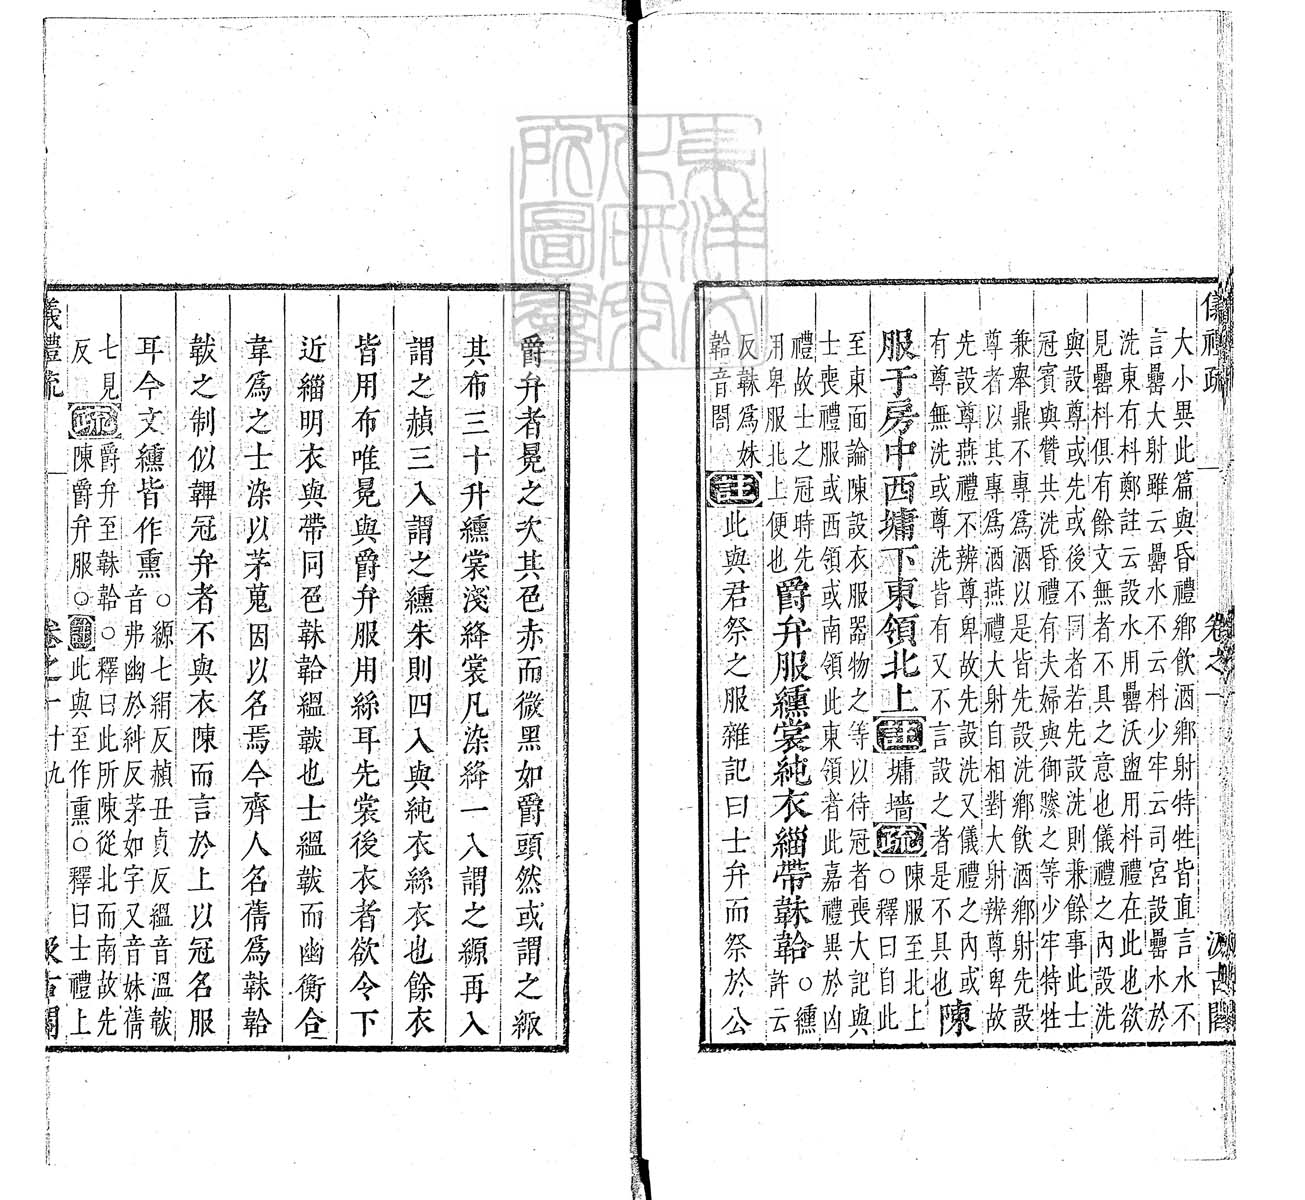 儀禮疏 卷之一 汲古閣
大小異此篇與昏禮鄉飲酒鄉射特牲皆直言水不
言罍大射雖云罍水不云枓少牢云司宮設罍水於
洗東有枓鄭註云設水用罍沃盥用枓禮在此也欲
見罍枓俱有餘文無者不具之意也儀禮之內設洗
與設尊或先或後不同者若先設洗則兼餘事此士
冠賓與贊共洗昏禮有夫婦與御媵之等少牢特牲
兼舉鼎不專為酒以是皆先設洗鄉飲酒鄉射先設
尊者以其專為酒燕禮大射自相對大射辨尊卑故
先設尊燕禮不辨尊卑故先設洗又儀禮之內或
有尊無洗或尊洗皆有又不言設之者是不具也
陳
服于房中西墉下東領北上註墉墻疏陳服至北上
○釋曰自此
至東面論陳設衣服器物之等以待冠者喪大記與
士喪禮服或西領或南領此東領者此嘉禮異於凶
禮故士之冠時先
用卑服北上便也
爵弁服纁裳純衣緇帶韎韐○纁
許云
反韎為妹
韐音閤
註此與君祭之服雜記曰士弁而祭於公
爵弁者冕之次其色赤而微黑如爵頭然或謂之緅
其布三十升纁裳淺絳裳凡染絳一入謂之縓再入
謂之赬三入謂之纁朱則四入與純衣絲衣也餘衣
皆用布唯冕與爵弁服用絲耳先裳後衣者欲令下
近緇明衣與帶同色韎韐縕韍也士縕韍而幽衡合
韋為之士染以茅蒐因以名焉今齊人名蒨為韎韐
韍之制似韠冠弁者不與衣陳而言於上以冠名服
耳今文纁皆作熏○縓七絹反赬丑貞反縕音溫韍
音弗幽於糾反茅如字又音妹蒨
七見
反
疏爵弁至韎韐○釋曰此所陳從北而南故先
陳爵弁服○註此與至作熏○釋曰士禮上
儀禮疏 卷之一 十九 汲古閣